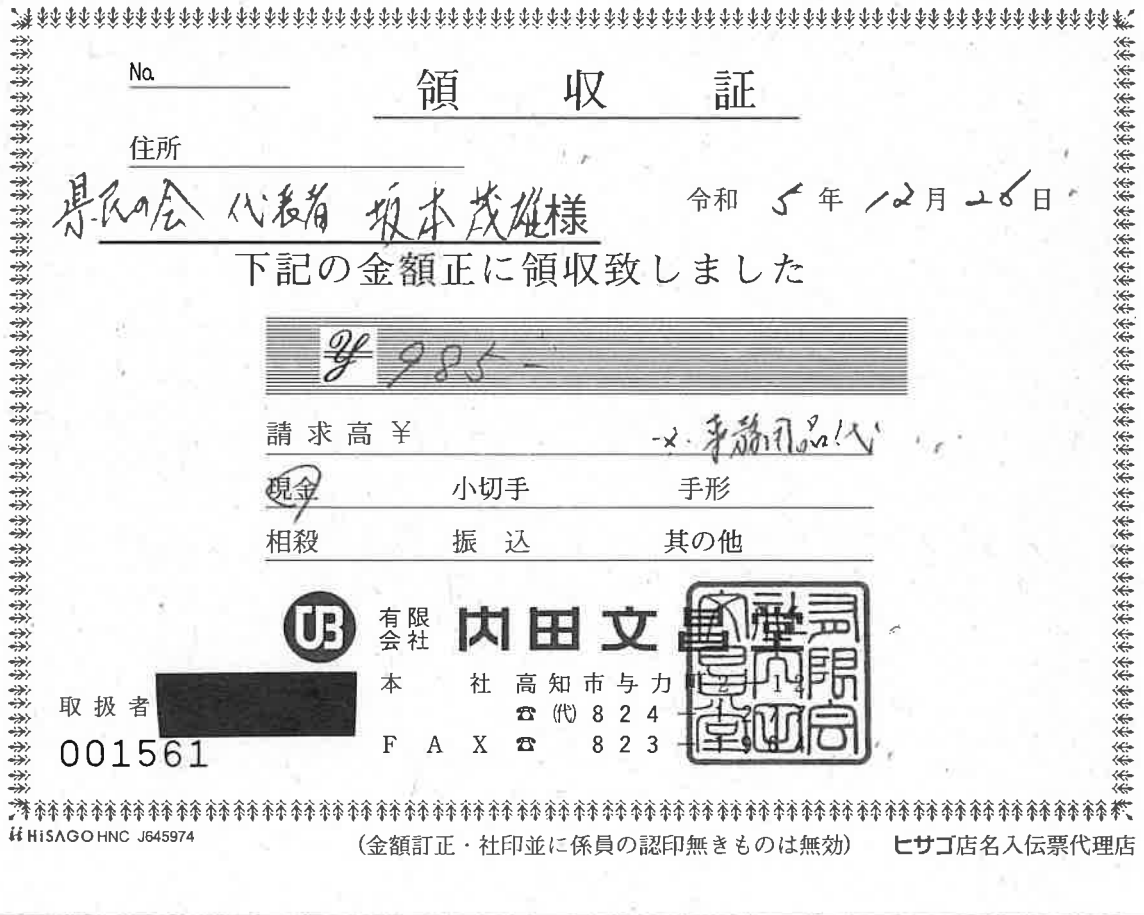 No.
領収証
住所
県民の会 代表者 坂本茂雄様
令和 5年 12月 26日
下記の金額正に領収致しました
¥ 985-
請求高¥
事務用品代
現金 小切手 手形
相殺 振込 其の他
UB 有限会社 内田文昌堂
有限会社内田文昌堂
本社 高知市与力町2-12
☎ (代) 824-
FAX ☎ 823-
取扱者
001561
HiSAGO HNC J645974
(金額訂正・社印並に係員の認印無きものは無効)
ヒサゴ店名入伝票代理店